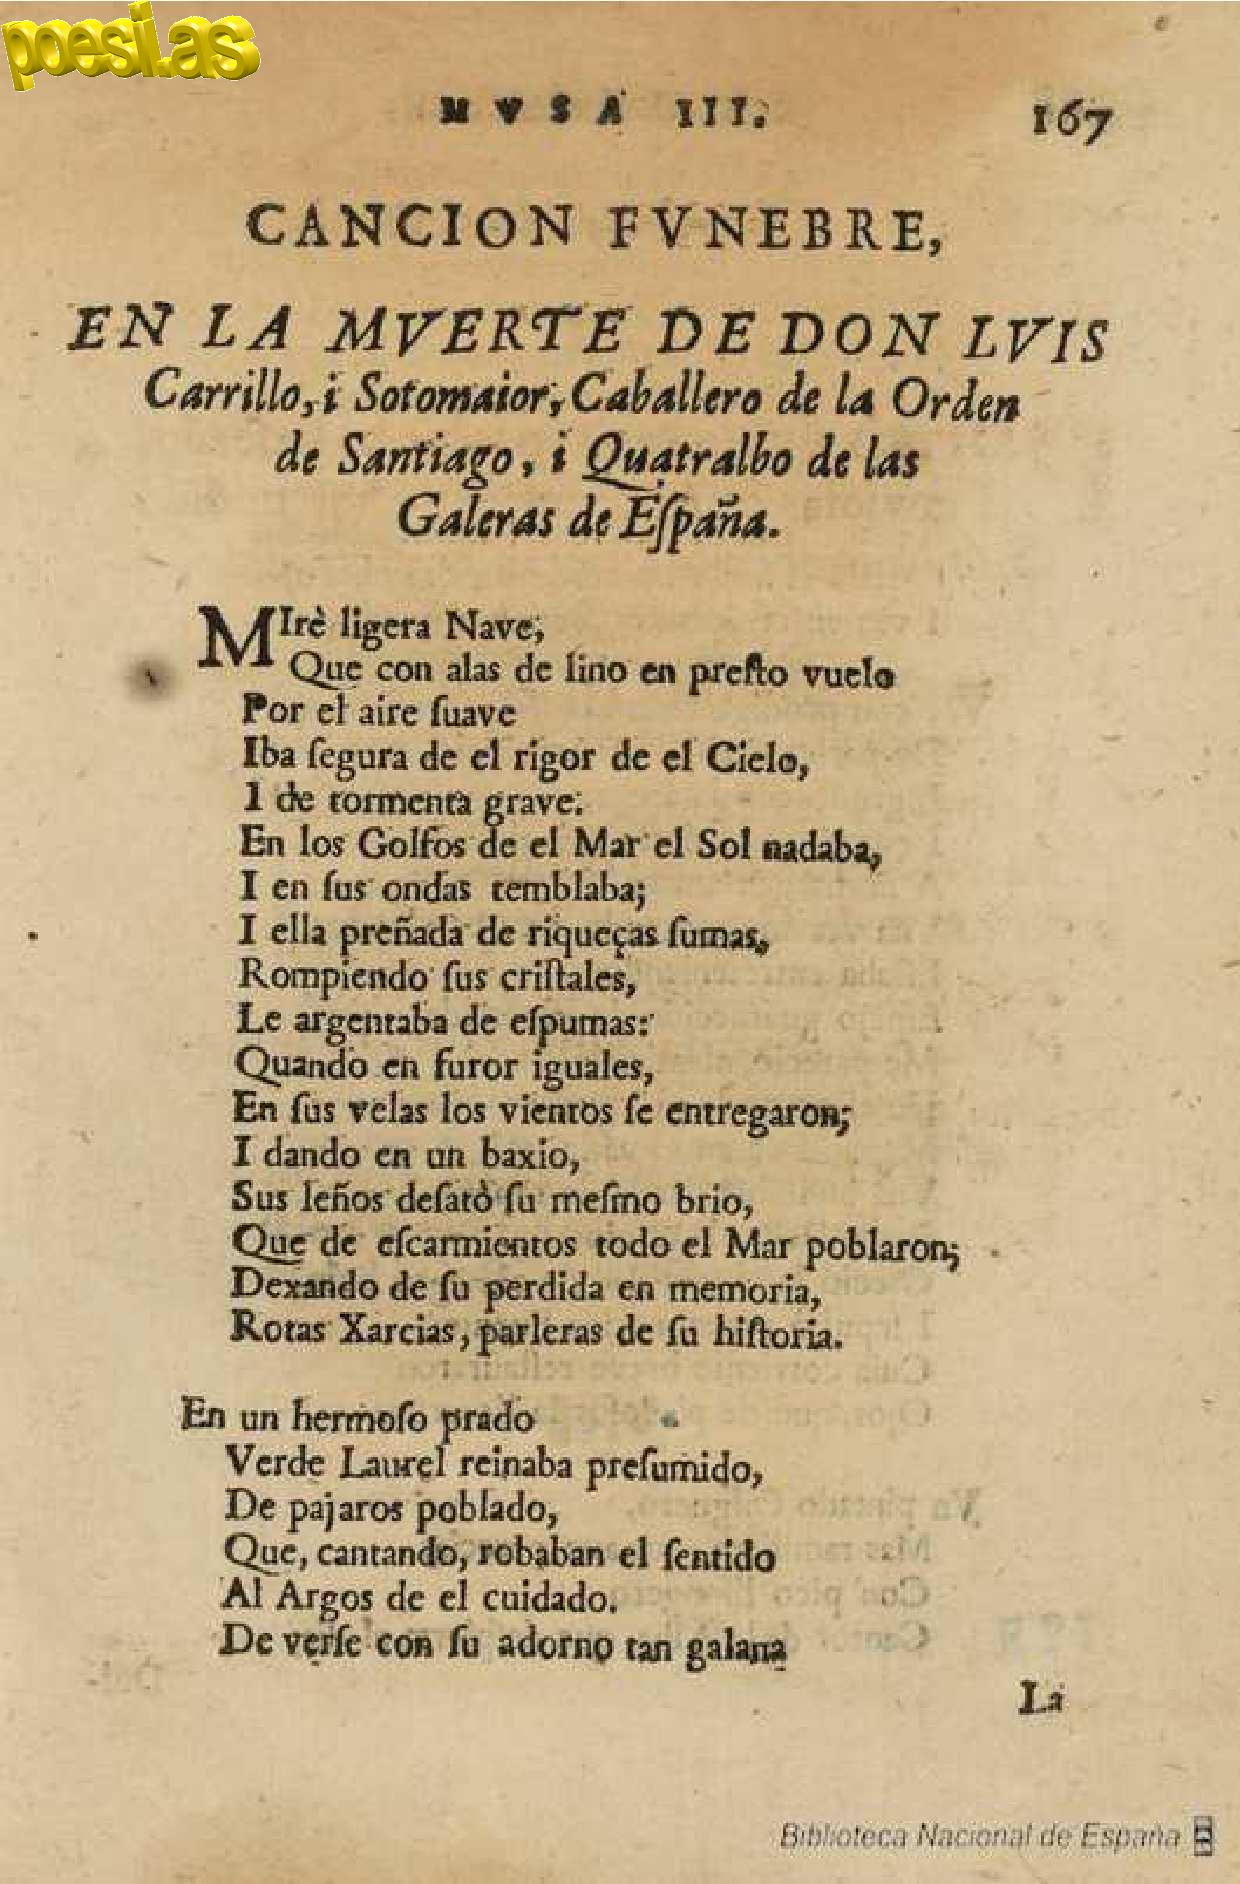 poesi.as
MVSA III. 167
CANCION FVNEBRE,
EN LA MVERTE DE DON LVIS
Carrillo, i Sotomaior, Caballero de la Orden
de Santiago, i Quatralbo de las
Galeras de Eſpaña.
MIrè ligera Nave,
Que con alas de lino en preſto vuelo
Por el aire ſuave
Iba ſegura de el rigor de el Cielo,
I de tormenta grave.
En los Golfos de el Mar el Sol nadaba,
I en ſus ondas temblaba;
I ella preñada de riqueças ſumas,
Rompiendo ſus criſtales,
Le argentaba de eſpumas:
Quando en furor iguales,
En ſus velas los vientos ſe entregaron;
I dando en un baxio,
Sus leños deſatò ſu meſmo brio,
Que de eſcarmientos todo el Mar poblaron;
Dexando de ſu perdida en memoria,
Rotas Xarcias, parleras de ſu hiſtoria.
En un hermoſo prado
Verde Laurel reinaba preſumido,
De pajaros poblado,
Que, cantando, robaban el ſentido
Al Argos de el cuidado.
De verſe con ſu adorno tan galana
La
Biblioteca Nacional de España